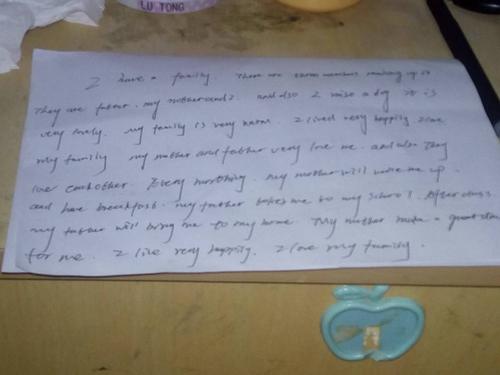 LU TONG
I have a family. There are three members making up it
They are father, my mother and I. and also I raise a dog it is
very lovely. my family is very warm. I lived very happily I love
my family my mother and father very love me. and also They
love eachother. Every morthing. my mother will wake me up.
and have breakfast. my father takes me to my school. After class.
my father will bring me to my home. My mother make a great
for me. I live very happily. I love my family.